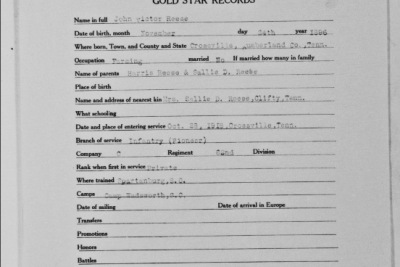 GOLD STAR RECORDS
Name in full John Victor Reese
Date of birth, month November day 24th year 1896
Where born, Town, and County and State Crossville, Cumberland Co. Tenn.
Occupation Farming married No If married how many in family
Name of parents Harris Reese & Sallie D. Reese
Place of birth
Name and address of nearest kin Mrs. Sallie D. Reese, Clifty, Tenn.
What schooling
Date and place of entering service Oct. 23, 1918, Crossville, Tenn.
Branch of service Infantry (Pioneer)
Company C Regiment Division
Rank when first in service Private
Where trained Spartanburg, S.C.
Camps Camp Wadsworth, S.C.
Date of sailing Date of arrival in Europe
Transfers
Promotions
Honors
Battles